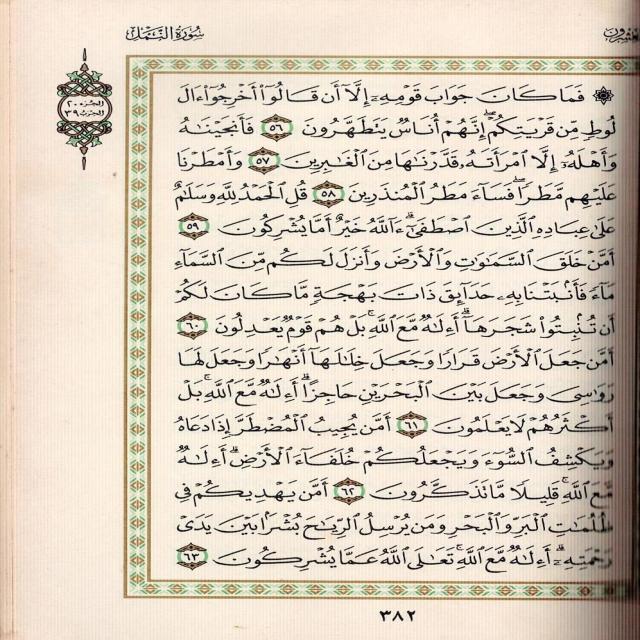 سُورَةُ النَّمْلِ
الجزء ٢٠
الحزب ٣٩
۞ فَمَا كَانَ جَوَابَ قَوْمِهِۦٓ إِلَّآ أَن قَالُوٓا۟ أَخْرِجُوٓا۟ ءَالَ
لُوطٍ مِّن قَرْيَتِكُمْ ۖ إِنَّهُمْ أُنَاسٌ يَتَطَهَّرُونَ ٥٦ فَأَنجَيْنَٰهُ
وَأَهْلَهُۥٓ إِلَّا ٱمْرَأَتَهُۥ قَدَّرْنَٰهَا مِنَ ٱلْغَٰبِرِينَ ٥٧ وَأَمْطَرْنَا
عَلَيْهِم مَّطَرًا ۖ فَسَآءَ مَطَرُ ٱلْمُنذَرِينَ ٥٨ قُلِ ٱلْحَمْدُ لِلَّهِ وَسَلَٰمٌ
عَلَىٰ عِبَادِهِ ٱلَّذِينَ ٱصْطَفَىٰٓ ۗ ءَآللَّهُ خَيْرٌ أَمَّا يُشْرِكُونَ ٥٩
أَمَّنْ خَلَقَ ٱلسَّمَٰوَٰتِ وَٱلْأَرْضَ وَأَنزَلَ لَكُم مِّنَ ٱلسَّمَآءِ
مَآءً فَأَنۢبَتْنَا بِهِۦ حَدَآئِقَ ذَاتَ بَهْجَةٍ مَّا كَانَ لَكُمْ
أَن تُنۢبِتُوا۟ شَجَرَهَآ ۗ أَءِلَٰهٌ مَّعَ ٱللَّهِ ۚ بَلْ هُمْ قَوْمٌ يَعْدِلُونَ ٦٠
أَمَّن جَعَلَ ٱلْأَرْضَ قَرَارًا وَجَعَلَ خِلَٰلَهَآ أَنْهَٰرًا وَجَعَلَ لَهَا
رَوَٰسِىَ وَجَعَلَ بَيْنَ ٱلْبَحْرَيْنِ حَاجِزًا ۗ أَءِلَٰهٌ مَّعَ ٱللَّهِ ۚ بَلْ
أَكْثَرُهُمْ لَا يَعْلَمُونَ ٦١ أَمَّن يُجِيبُ ٱلْمُضْطَرَّ إِذَا دَعَاهُ
وَيَكْشِفُ ٱلسُّوٓءَ وَيَجْعَلُكُمْ خُلَفَآءَ ٱلْأَرْضِ ۗ أَءِلَٰهٌ
مَّعَ ٱللَّهِ ۚ قَلِيلًا مَّا تَذَكَّرُونَ ٦٢ أَمَّن يَهْدِيكُمْ فِى
ظُلُمَٰتِ ٱلْبَرِّ وَٱلْبَحْرِ وَمَن يُرْسِلُ ٱلرِّيَٰحَ بُشْرًۢا بَيْنَ يَدَىْ
رَحْمَتِهِۦٓ ۗ أَءِلَٰهٌ مَّعَ ٱللَّهِ ۚ تَعَٰلَى ٱللَّهُ عَمَّا يُشْرِكُونَ ٦٣
٣٨٢